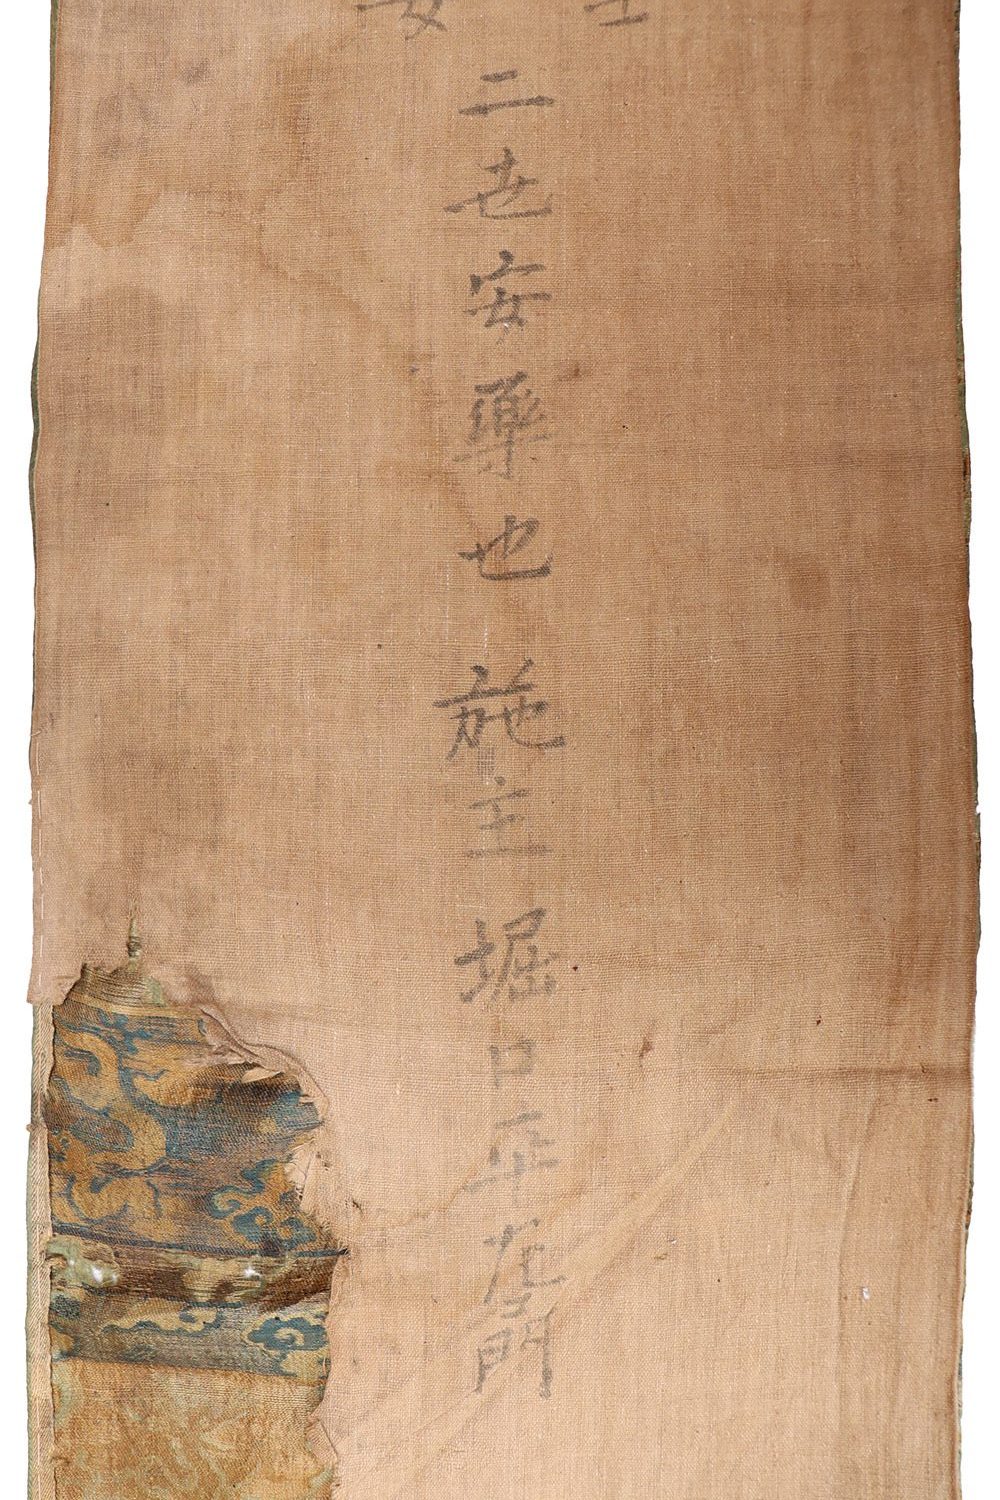 二世安樂也 施主堀口平門